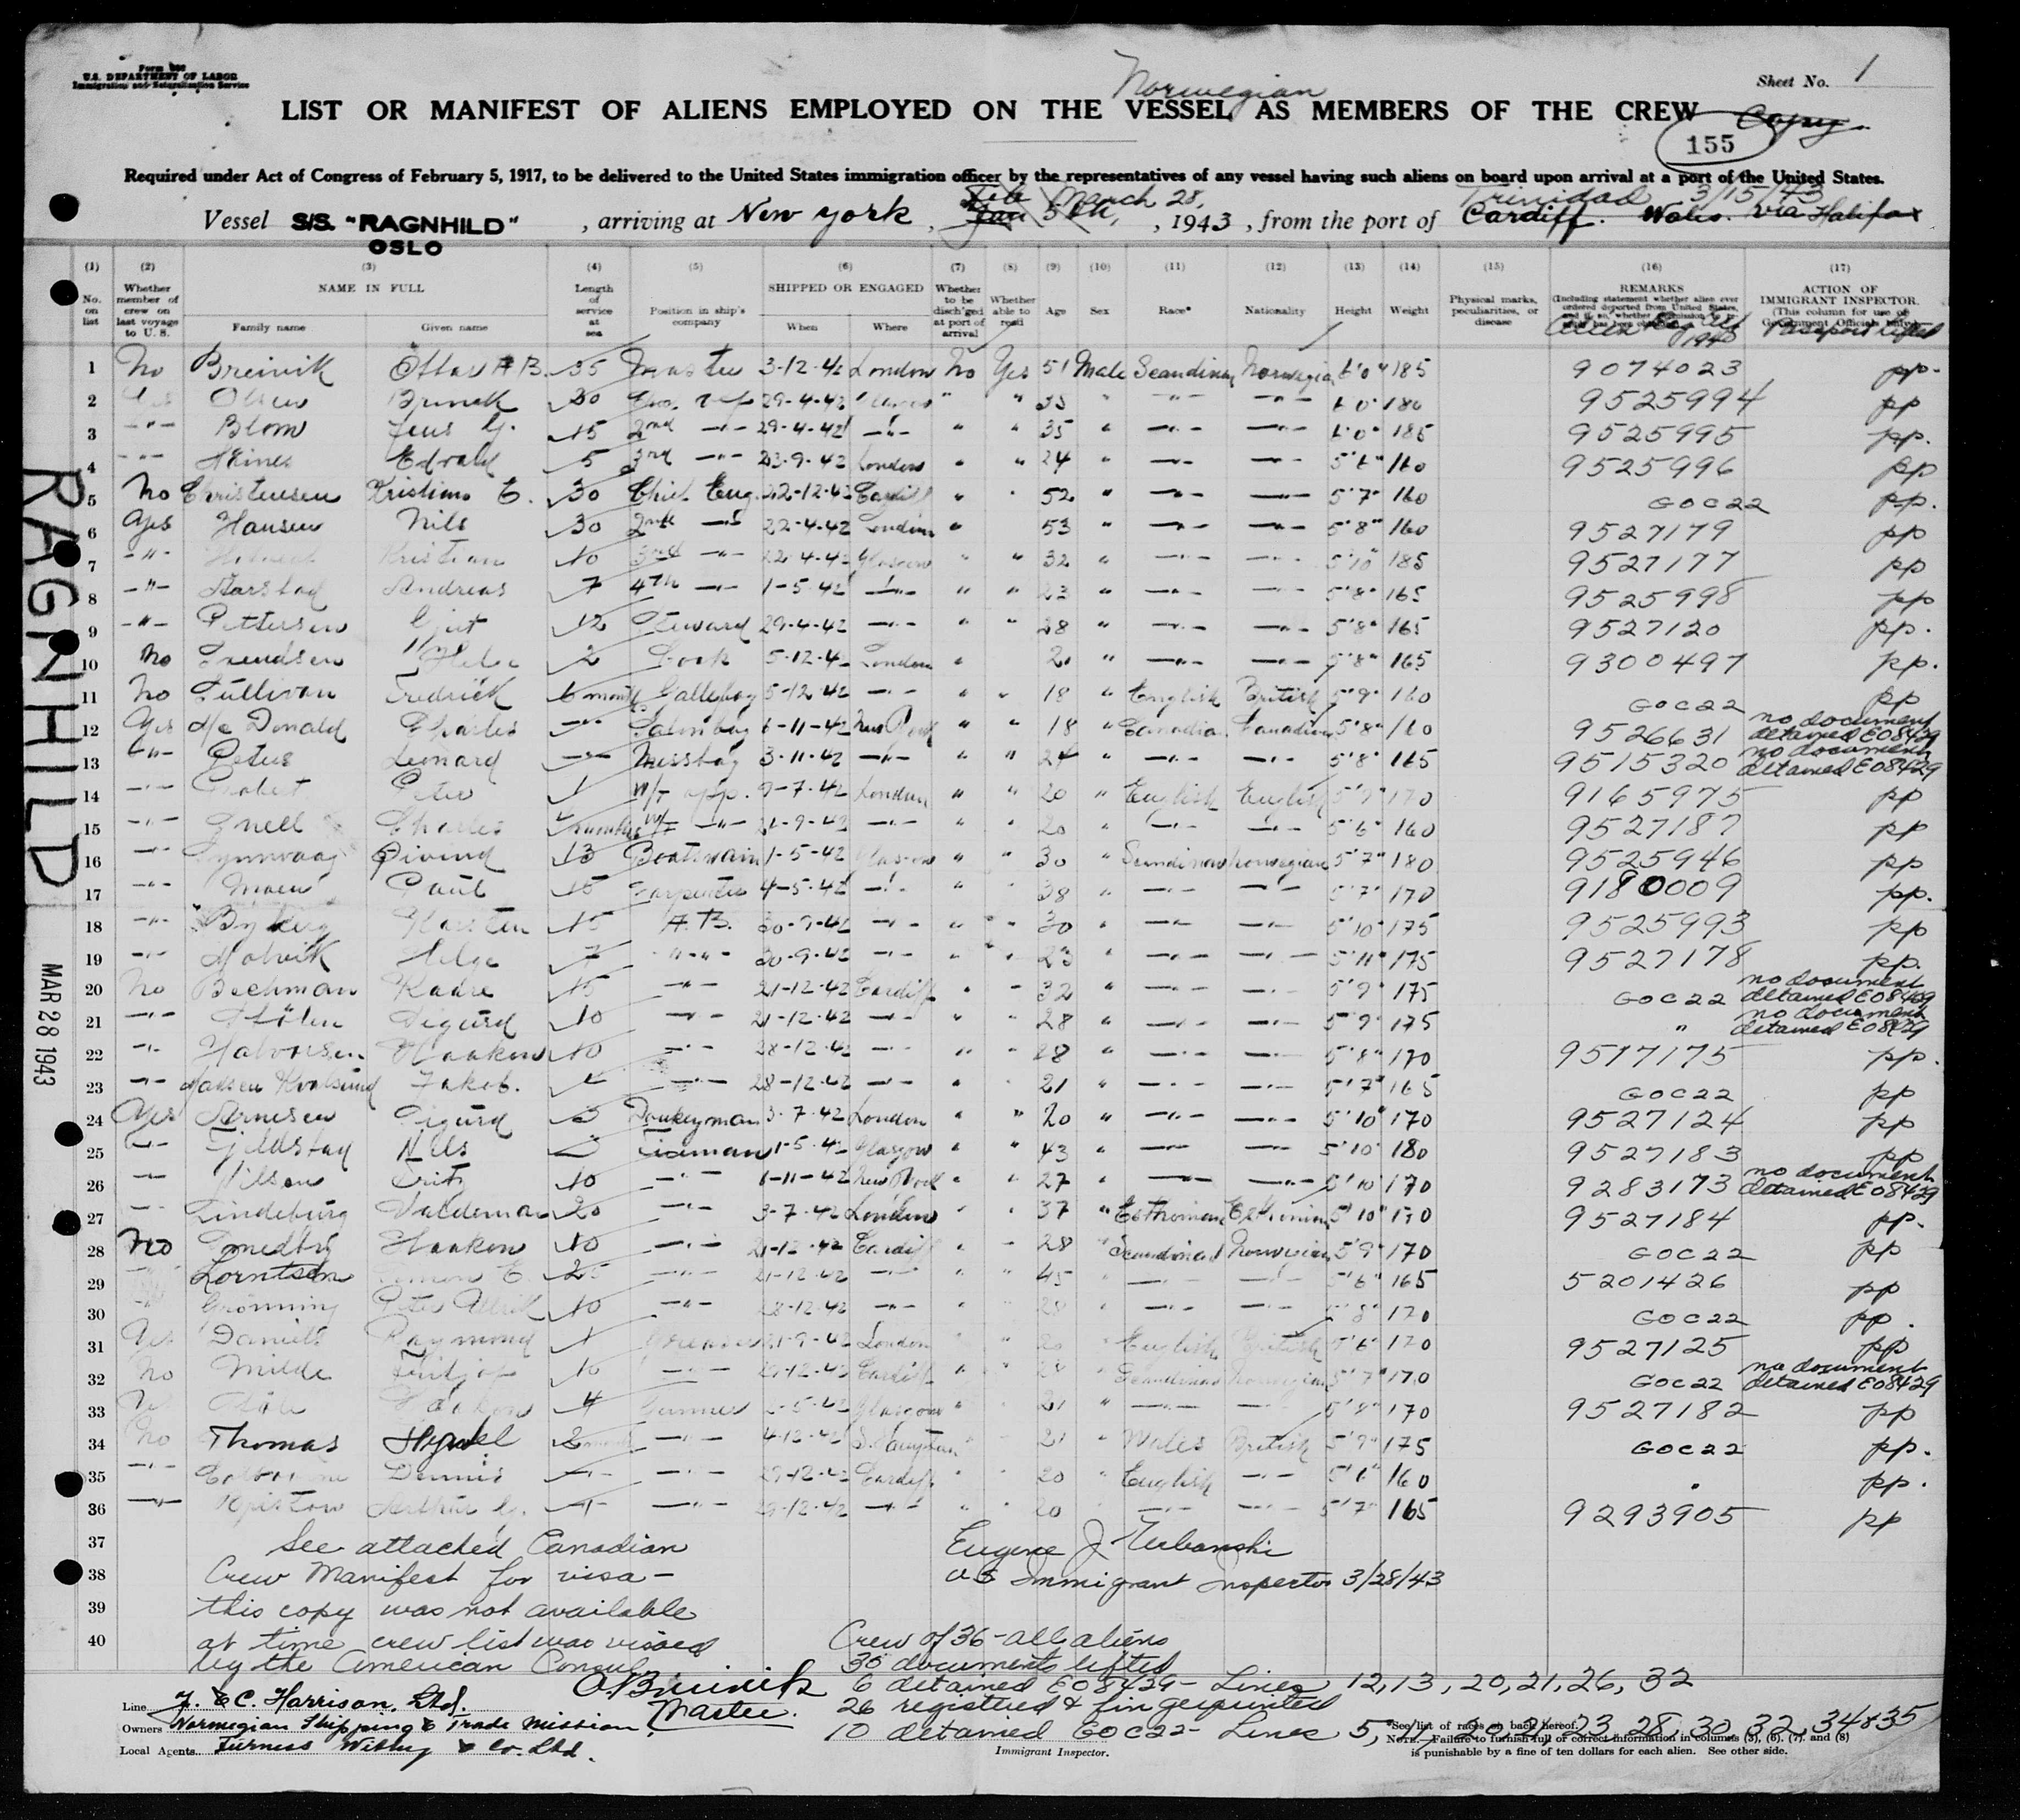 Form 680
U.S. DEPARTMENT OF LABOR
Immigration and Naturalization Service
Norwegian
Sheet No. 1
LIST OR MANIFEST OF ALIENS EMPLOYED ON THE VESSEL AS MEMBERS OF THE CREW
Copy
155
Required under Act of Congress of February 5, 1917, to be delivered to the United States immigration officer by the representatives of any vessel having such aliens on board upon arrival at a port of the United States.
Feb March 28, Trinidad 3/15/43
Vessel S/S. "RAGNHILD" , arriving at New York , Jan 5th, , 1943 , from the port of Cardiff. Wales. via Halifax
OSLO
(1) (2) (3) (4) (5) (6) (7) (8) (9) (10) (11) (12) (13) (14) (15) (16) (17)
No. on list
Whether member of crew on last voyage to U. S.
NAME IN FULL
Family name Given name
Length of service at sea
Position in ship's company
SHIPPED OR ENGAGED
When Where
Whether to be disch'ged at port of arrival
Whether able to read
Age Sex Race* Nationality Height Weight
Physical marks, peculiarities, or disease
REMARKS
(Including statement whether alien ever ordered deported from United States,
ACTION OF IMMIGRANT INSPECTOR.
(This column for use of Government Officials only)
Passport lifted
1940
1 No Breivik Ottar A B. 35 Master 3-12-42 London No Yes 51 Male Scandinav Norwegian 6'0" 185 9074023 pp.
2 Yes Olsen 30 29-4-42 Glasgow " " " -"- -"- 6'0" 9525994 pp
3 -"- Blom Jens G. 15 2nd -"- 29-4-42 -"- " " 35 " -"- -"- 6'0" 185 9525995 pp.
4 -"- Edvald 5 3rd -"- 23-9-42 London " " 24 " -"- -"- 5'6" 160 9525996 pp
5 No Christensen Kristians E. 30 Chief Eng. 22-12-42 Cardiff " " 52 " -"- -"- 5'7" 160 GOC22 pp.
6 Yes Hansen Nils 30 2nd -"- 22-4-42 London " 53 " -"- -"- 5'8" 160 9527179 pp
7 -"- Kristian 10 3rd -"- 22-4-42 Glasgow " " 32 " -"- -"- 5'10" 185 9527177 pp
8 -"- Harstad Andreas 7 4th -"- 1-5-42 -"- " " 23 " -"- -"- 5'8" 165 9525998 pp
9 -"- Pettersen 12 Steward 29-4-42 -"- " " 28 " -"- -"- 5'8" 165 9527120 pp.
10 No 2 Cook 5-12-42 London " " -"- -"- 5'8" 165 9300497 pp.
11 No Sullivan Fredrick 6 months Galleyboy 5-12-42 -"- " " 18 " English British 5'9" 160 GOC22 pp
12 Yes Mc Donald Charles -"- Salonboy 6-11-42 New York " " 18 " Canadian Canadian 5'8" 160 9526631 no document detained E08429
13 -"- Peters Leonard -"- Messboy 3-11-42 -"- " " 24 " -"- -"- 5'8" 165 9515320 no document detained E08429
14 -"- Peter 1 W/T opp. 9-7-42 London " " 20 " English English 5'9" 170 9165975 pp
15 -"- Snell Charles W/T -"- 21-9-42 -"- " " 20 " -"- -"- 5'6" 160 9527187 pp
16 -"- Øivind 13 Boatswain 1-5-42 Glasgow " " 30 " Scandinav Norwegian 5'7" 180 9525946 pp
17 -"- Moen Paul 15 Carpenter 4-5-42 -"- 38 " -"- -"- 5'7" 170 9180009 pp.
18 -"- Karsten 15 A.B. 30-9-42 -"- " " 30 " -"- -"- 5'10" 175 9525993 pp
19 -"- Helge 7 -"- 30-9-42 -"- " " 23 " -"- -"- 5'11" 175 9527178 pp.
20 No Bechman Kaare 15 -"- 21-12-42 Cardiff " " 32 " -"- -"- 5'9" 175 GOC22 no document detained E08429
21 -"- Sigurd 10 -"- 21-12-42 -"- " " 28 " -"- -"- 5'9" 175 " no document detained E08429
22 -"- Halvorsen Haakon 10 -"- 28-12-42 -"- " " 28 " -"- -"- 5'8" 170 9517175 pp.
23 -"- Madsen Kvalsund Jakob. -"- 28-12-42 -"- " " 21 " -"- -"- 5'7" 165 GOC22 pp
24 Yes Arnesen Sigurd Donkeyman 3-7-42 London " " 20 " -"- -"- 5'10" 170 9527124 pp
25 -"- Fjeldstad Nils Fireman 1-5-42 Glasgow " " 43 " -"- -"- 5'10" 180 9527183 pp
26 -"- Nilsen Fritz 10 -"- 6-11-42 New York " " 27 " -"- -"- 5'10" 170 9283173 no document detained E08429
27 -"- Lindeburg Valdeman 20 -"- 3-7-42 London " " 37 " Esthonian Esthonian 5'10" 170 9527184 pp.
28 No Haakon 10 -"- 21-12-42 Cardiff " " 28 " Scandinav Norwegian 5'9" 170 GOC22 pp
29 Lorntsen Simon E. 25 -"- 21-12-42 -"- " " 45 -"- -"- 5'6" 165 5201426 pp
30 -"- Grønning Peter Ulrik 10 -"- 28-12-42 -"- " " 28 -"- -"- 5'8" 170 GOC22 pp.
31 Yes Daniels Raymond 1 Greaser 21-9-42 London 20 English British 5'6" 170 9527125 pp
32 No Milde Fritjof 10 -"- 29-12-42 Cardiff " " 28 " Scandinav Norwegian 5'7" 170 GOC22 no document detained E08429
33 Yes Haakon 4 Gunner 2-5-42 Glasgow " 21 " -"- -"- 5'8" 170 9527182 pp
34 No Thomas -"- 4-12-42 S. Hampton 21 " Wales British 5'9" 175 GOC22 pp.
35 -"- Dennis -"- -"- 29-12-42 Cardiff 20 English -"- 5'6" 160 " pp.
36 -"- Arthur G. -"- -"- 29-12-42 -"- 20 -"- -"- 5'7" 165 9293905 pp
37 See attached Canadian Eugene J.
38 Crew Manifest for visa - US Immigrant Inspector 3/28/43
39 this copy was not available
40 at time crew list was visaed Crew of 36 - all aliens
by the American Consul 30 documents lifted
6 detained E08429 - Lines 12, 13, 20, 21, 26, 32
26 registered & fingerprinted
10 detained GOC22 - Lines 5, 11, 20, 21, 23, 28, 30, 32, 34 & 35
O. Breivik
Master.
Line T. & C. Harrison, Ltd.
Owners Norwegian Shipping & Trade Mission.
Local Agents Furness Withy & Co. Ltd.
Immigrant Inspector.
*See list of races on back hereof.
NOTE.—Failure to furnish full or correct information in columns (3), (6), (7) and (8)
is punishable by a fine of ten dollars for each alien. See other side.
RAGNHILD
MAR 28 1943